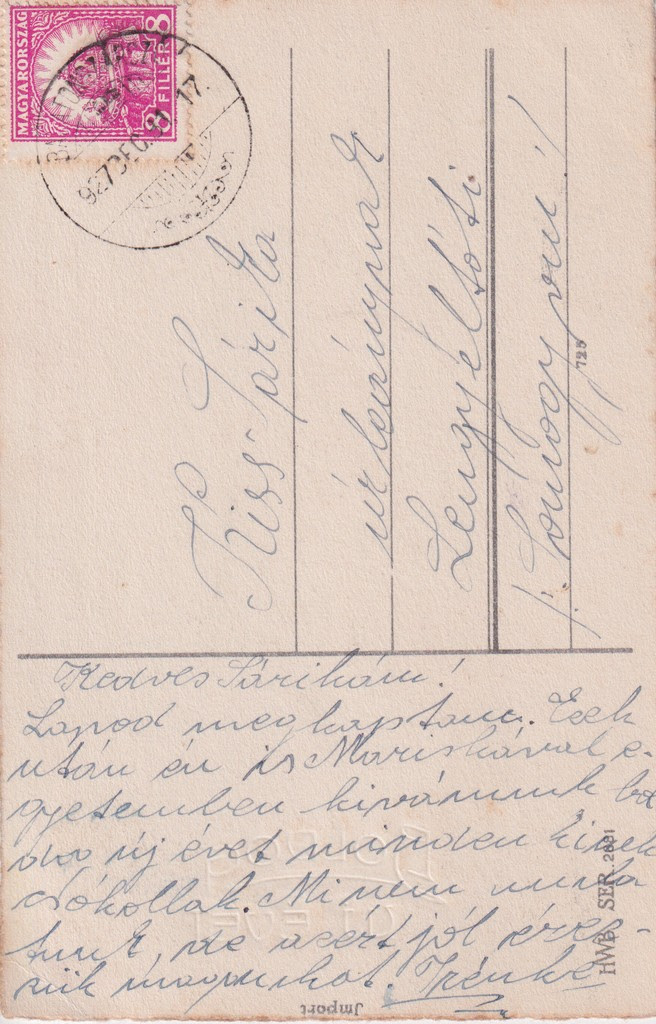 MAGYARORSZÁG
8 FILLÉR 8
927 DEC. 31 17
Kiss Sárika
úrleánynak
Lengyeltóti
/: Somogy vm. :/
725
Kedves Sárikám!
Lapod megkaptam. Ezek
után én is Mariskával e-
gyetemben kívánunk bol
dog új évet minden kinek
csókollak. Mi nem mula
tunk, de azért jól érez-
zük magunkat. Irénke
BOLDOG
ÚJ ÉVET
HWB. SER. 2681
Import